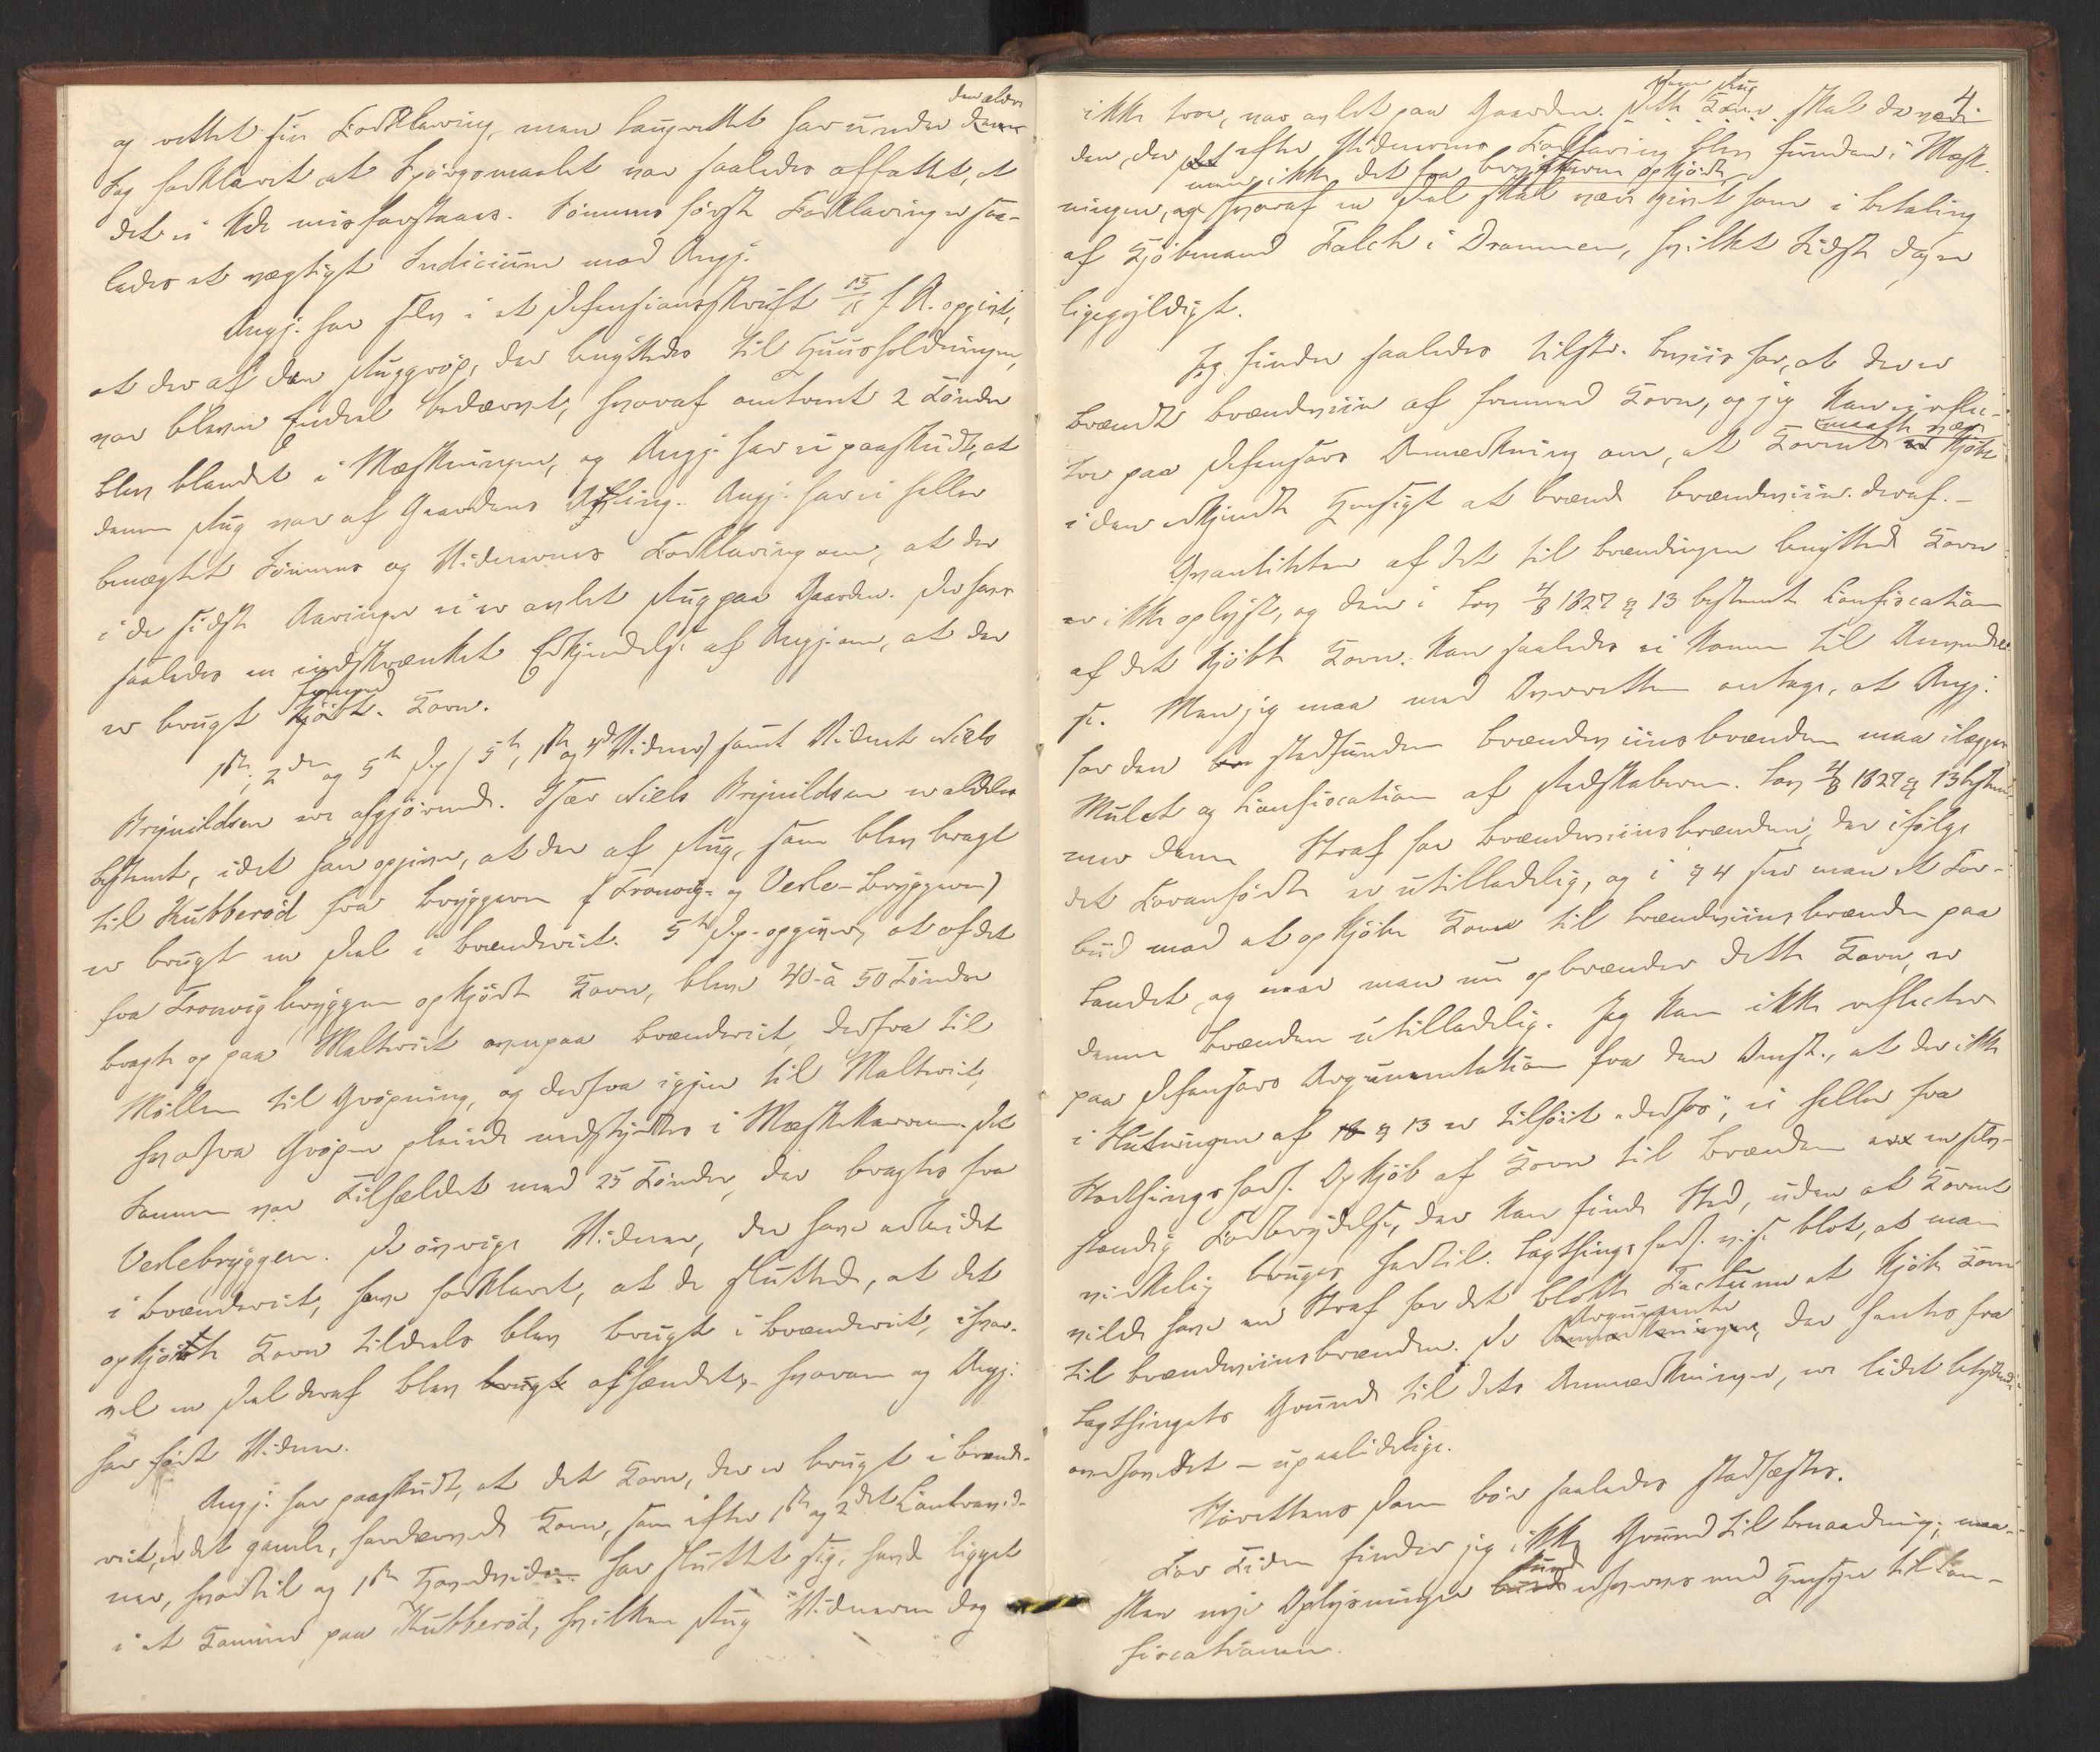 og rettet sin Forklaring, men Laugrettet har under den ældre
Sag forklaret at Spörgsmaalet var saaledes affattet, at
det ei kde misforstaaes. Sönnens förste Forklaring er saa-
ledes et vægtigt Indicium mod Angj.
Angj. har selv i et Defensionsskrift 15/11 f. A. opgivet,
at der af den Rug, der benyttedes til Huusholdningen,
var bleven Endeel bedærvet, hvoraf omtrent 2 Tönder
blev blandet i Mæskningen, og Angj. har ei paastaaet, at
denne Rug var af Gaardens Avling. Angj. har ei heller
benægtet Sönnens og Vidnernes Forklaring om, at der
i de sidste Aaringer ei er avlet Rug paa Gaarden. Der haves
saaledes en indskrænket Erkjendelse af Angj. om, at der
er brugt fremmed Korn.
1ste, 2den og 5te Dep. (5te, 1ste og 3die Vidner) samt Vidnet Niels
Brynildsen ere afgjörende. Især Niels Brynildsen er aldeles
bestemt, idet han opgiver, at der af Rug, som blev bragt
til Kubberöd fra Bryggerne (Tronvig- og Verle-Bryggerne)
er brugt en Deel i Brænderiet. 5te Dep. opgiver, at af det
fra Tronvigbryggen opkjörte Korn, blev 40 à 50 Tönder
bragt op paa Maltviet ovenpaa Brænderiet, derfra til
Möllen til Gröpning, og derfra igjen til Maltviet,
hvorfra Gröpen pleiede nedstyrtes i Mæskekarrene. Det
Samme var Tilfældet med 25 Tönder, der bragtes fra
Verlebryggen. De övrige Vidner, der have arbeidet
i Brænderiet, have forklaret, at de sluttede, at det
opkjörte Korn tildeels blev brugt i Brænderiet, ihvor-
vel en Deel deraf blev brugt afsendet, hvorom og Angj.
har fört Vidner.
Angj. har paastaaet, at det Korn, der er brugt i Brænde-
riet, er det gamle, fordærvede Korn, som efter 1ste og 2det Contravid-
ner, hvortil og 1ste Hovedvidne har sluttet sig, havde ligget
i et Kammer paa Kubberöd, hvilken Rug Vidnerne dog
4
ikke troe, var avlet paa Gaarden. Denne Rug skal da være
den, der efter Vidnernes Forklaring blev funden i Mæsk-
ningen, men ikke det fra Bryggerne opkjörte
og hvoraf en Deel skal være givet som i Betaling
af Kjöbmand Falch i Drammen, hvilket sidste dog er
ligegyldigt.
Jeg finder saaledes tilstr. Beviis for, at der er
brændt Brændeviin af fremmed Korn, og jeg kan ei reflec-
tere paa Defensors Anmærkning om, at Kornet maatte være kjöbt
i den erkjendte Hensigt at brænde Brændeviin deraf.
Qvantiteten af det til Brændingen benyttede Korn
er ikke oplyst, og den i Lov 4/8 1827 § 13 bestemte Confiscation
af det kjöbte Korn kan saaledes ei komme til Anvendel-
se. Men jeg maa med Overretten antage, at Angj.
for den stedfundne Brændeviinsbrænden maa ilægges
Mulct og Confiscation af Redskaberne. Lov 4/8 1827 § 13 bestem-
mer denne Straf for Brændeviinsbrænden, der ifölge
det Foranförte er utilladelig, og i § 4 har man et For-
bud mod at opkjöbe Korn til Brændeviinsbrænden paa
Landet, og naar man nu opbrænder dette Korn, er
denne Brænden utilladelig. Jeg kan ikke reflectere
paa Defensors Argumentation fra den Omst., at der ikke
i Slutningen af § 13 er tilföiet "derfor", ei heller fra
Storthingsforh. Opkjöb af Korn til Brænden er en selv-
stændig Forbrydelse, der kan finde Sted, uden at Kornet
virkelig bruges hertil. Lagthingsforh. vise blot, at man
vilde have en Straf for det blotte Factum at kjöbe Korn
til Brændeviinsbrænden. De Argumenter, der hentes fra
Lagthingets Grunde til dets Anmærkninger, ere lidet betydende
overhovedet – upaalidelige.
Overrettens Dom bör saaledes stadfæstes.
For Tiden finder jeg ikke Grund til Benaadning; maa-
skee nye Oplysninger kunde erhverves med Hensyn til Con-
fiscationen.